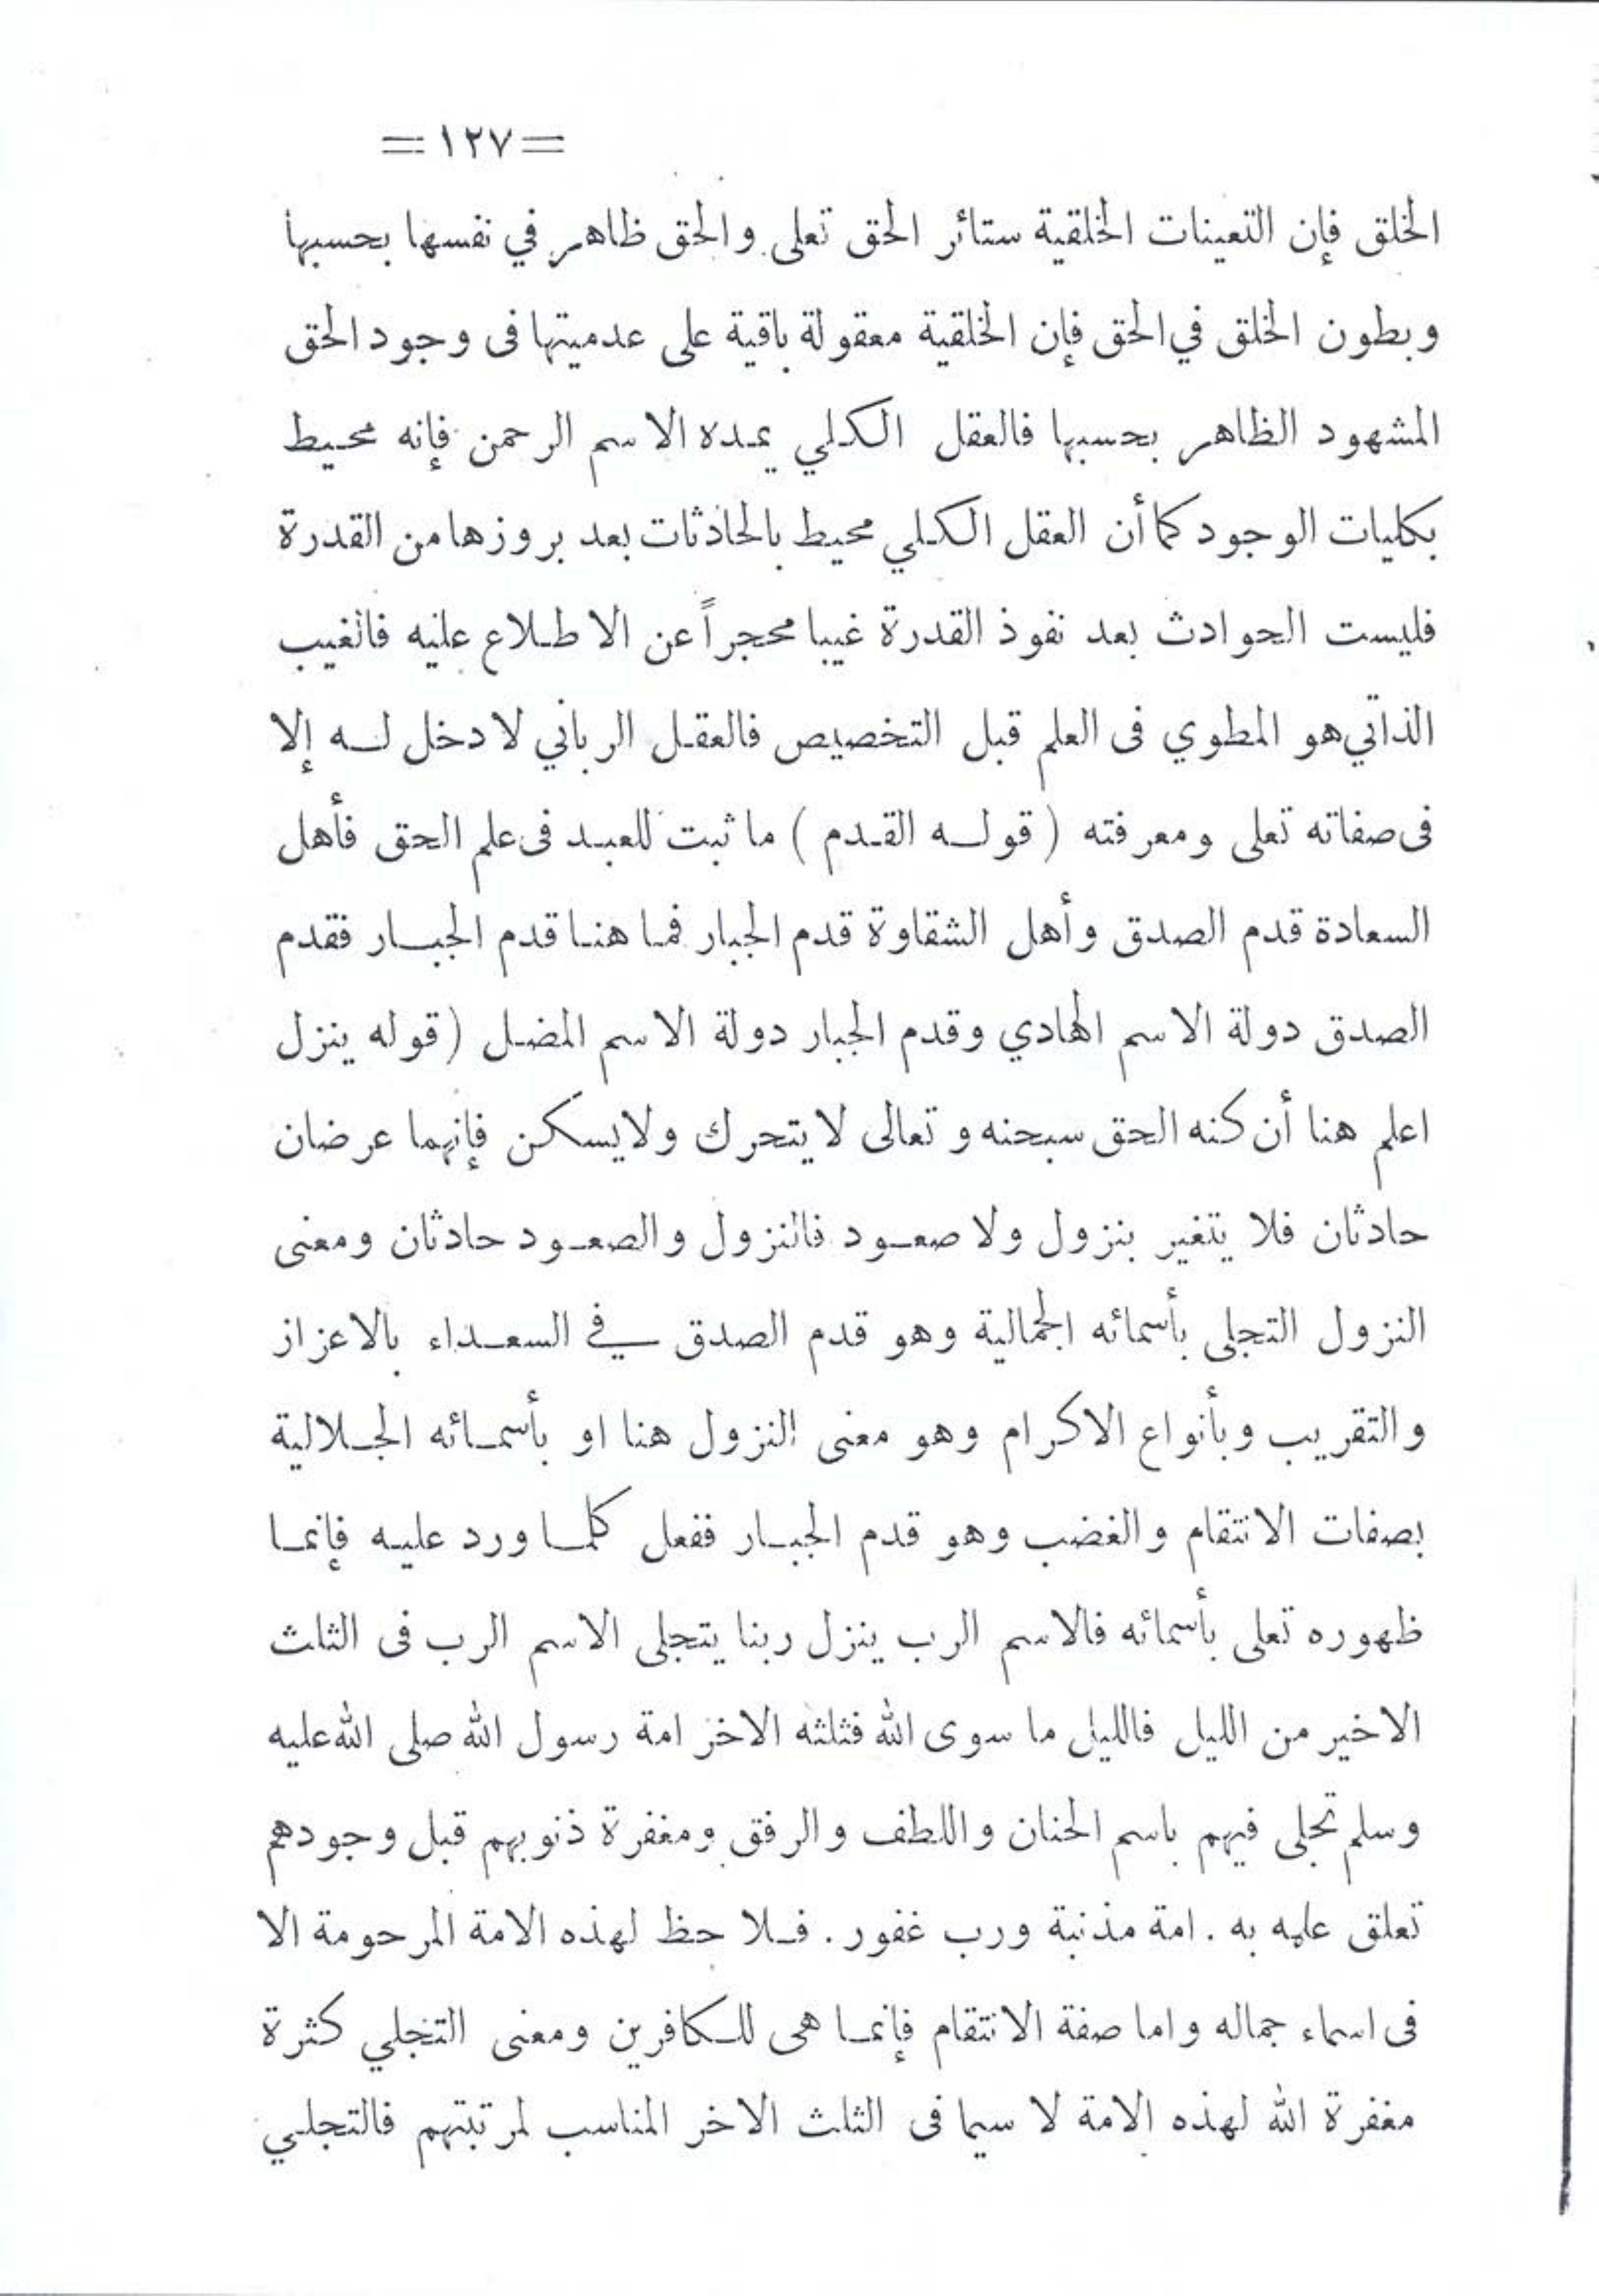 =١٢٧=
الخلق فإن التعينات الخلقية ستائر الحق تعلى والحق ظاهر في نفسها بحسبها
وبطون الخلق في الحق فإن الخلقية معقولة باقية على عدميتها فى وجود الحق
المشهود الظاهر بحسبها فالعقل الكلي يمده الاسم الرحمن فإنه محيط
بكليات الوجود كما أن العقل الكلي محيط بالحاذثات بعد بروزها من القدرة
فليست الحوادث بعد نفوذ القدرة غيبا محجراً عن الاطلاع عليه فالغيب
الذاتي هو المطوي فى العلم قبل التخصيص فالعقل الرباني لا دخل له إلا
فى صفاته تعلى ومعرفته ( قوله القدم ) ما ثبت للعبد فى علم الحق فأهل
السعادة قدم الصدق وأهل الشقاوة قدم الجبار فما هنا قدم الجبار فقدم
الصدق دولة الاسم الهادي وقدم الجبار دولة الاسم المضل (قوله ينزل
اعلم هنا أن كنه الحق سبحنه وتعالى لا يتحرك ولا يسكن فإنهما عرضان
حادثان فلا يتغير بنزول ولا صعود فالنزول والصعود حادثان ومعنى
النزول التجلى بأسمائه الجمالية وهو قدم الصدق في السعداء بالاعزاز
والتقريب وبأنواع الاكرام وهو معنى النزول هنا او بأسمائه الجلالية
بصفات الانتقام والغضب وهو قدم الجبار ففعل كلما ورد عليه فإنما
ظهوره تعلى بأسمائه فالاسم الرب ينزل ربنا يتجلى الاسم الرب فى الثلث
الاخير من الليل فالليل ما سوى الله فثلثه الاخر امة رسول الله صلى الله عليه
وسلم تجلى فيهم باسم الحنان واللطف والرفق ومغفرة ذنوبهم قبل وجودهم
تعلق علمه به . امة مذنبة ورب غفور . فلا حظ لهذه الامة المرحومة الا
فى اسماء جماله واما صفة الانتقام فإنما هى للكافرين ومعنى التجلي كثرة
مغفرة الله لهذه الامة لا سيما فى الثلث الاخر المناسب لمرتبتهم فالتجلي